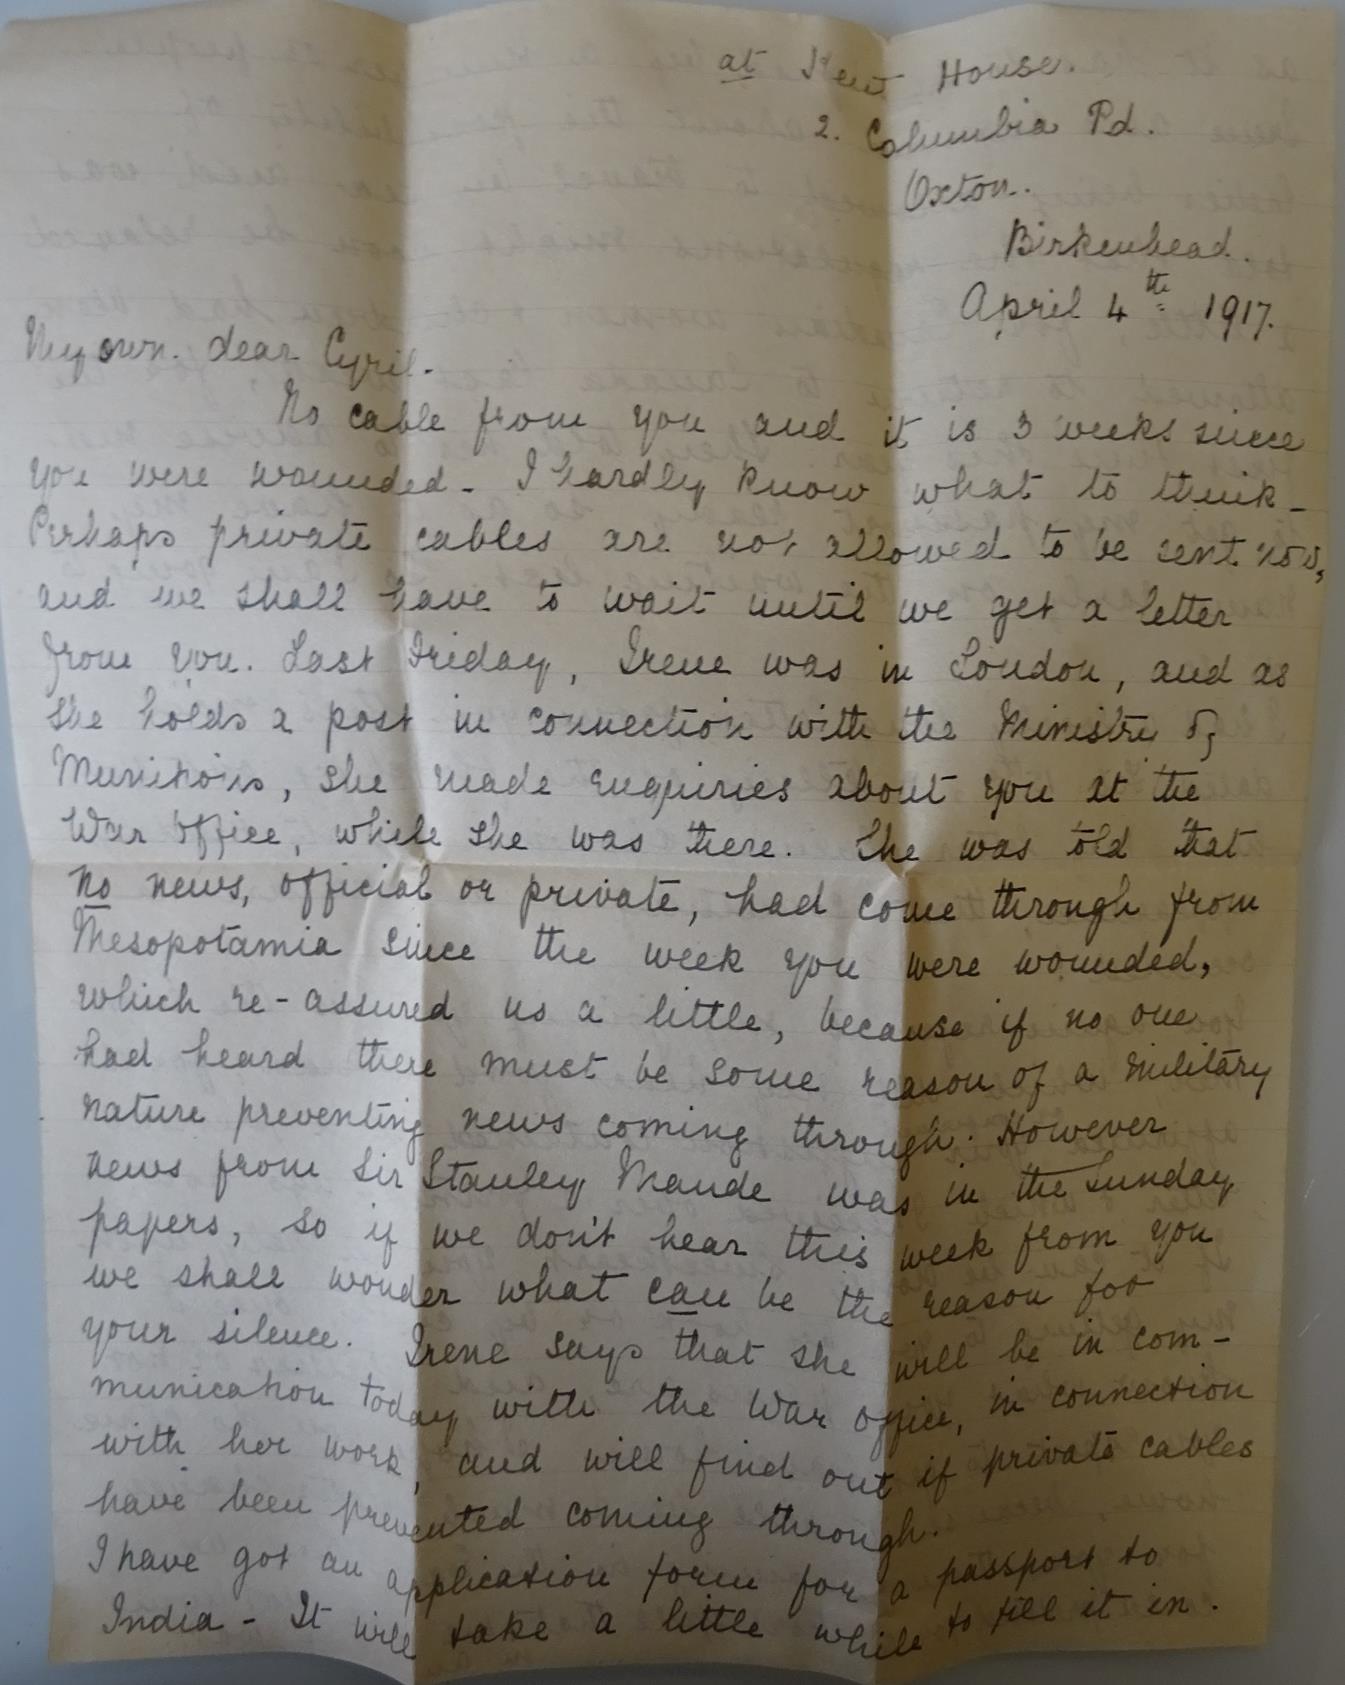 at Kent House.
2. Columbia Rd.
Oxton.
Birkenhead.
April 4th 1917.
My own dear Cyril.
No cable from you and it is 3 weeks since
you were wounded - I hardly know what to think -
Perhaps private cables are not allowed to be sent now,
and we shall have to wait until we get a letter
from you. Last Friday, Irene was in London, and as
she holds a post in connection with the Ministry of
Munitions, she made enquiries about you at the
War Office, while she was there. She was told that
no news, official or private, had come through from
Mesopotamia since the week you were wounded,
which re-assured us a little, because if no one
had heard there must be some reason of a military
nature preventing news coming through. However
news from Sir Stanley Maude was in the Sunday
papers, so if we don't hear this week from you
we shall wonder what can be the reason for
your silence. Irene says that she will be in com-
munication today with the War Office, in connection
with her work, and will find out if private cables
have been prevented coming through.
I have got an application form for a passport to
India - It will take a little while to fill it in.